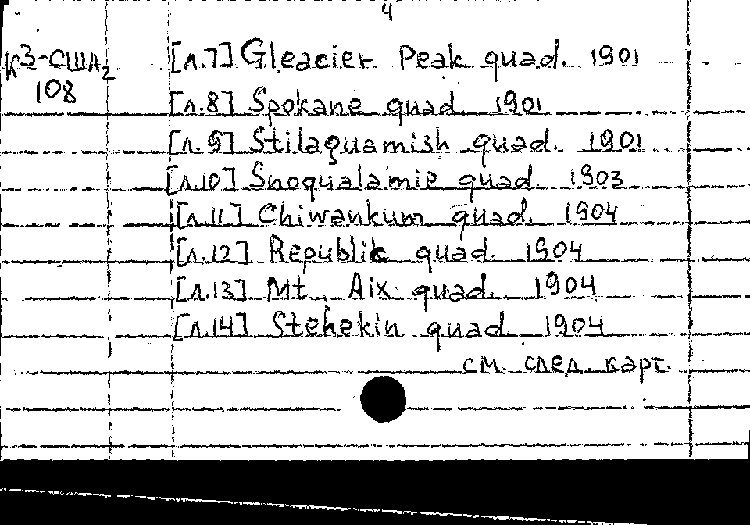 4
К3-США2
108
[л.7] Gleacier Peak quad. 1901
[л.8] Spokane quad. 1901
[л.9] Stilaquamish quad. 1901
[л.10] Snoqualamie quad. 1903
[л.11] Chiwankum quad. 1904
[л.12] Republik quad. 1904
[л.13] Mt. Aix quad. 1904
[л.14] Stehekin quad. 1904
см. след. карт.